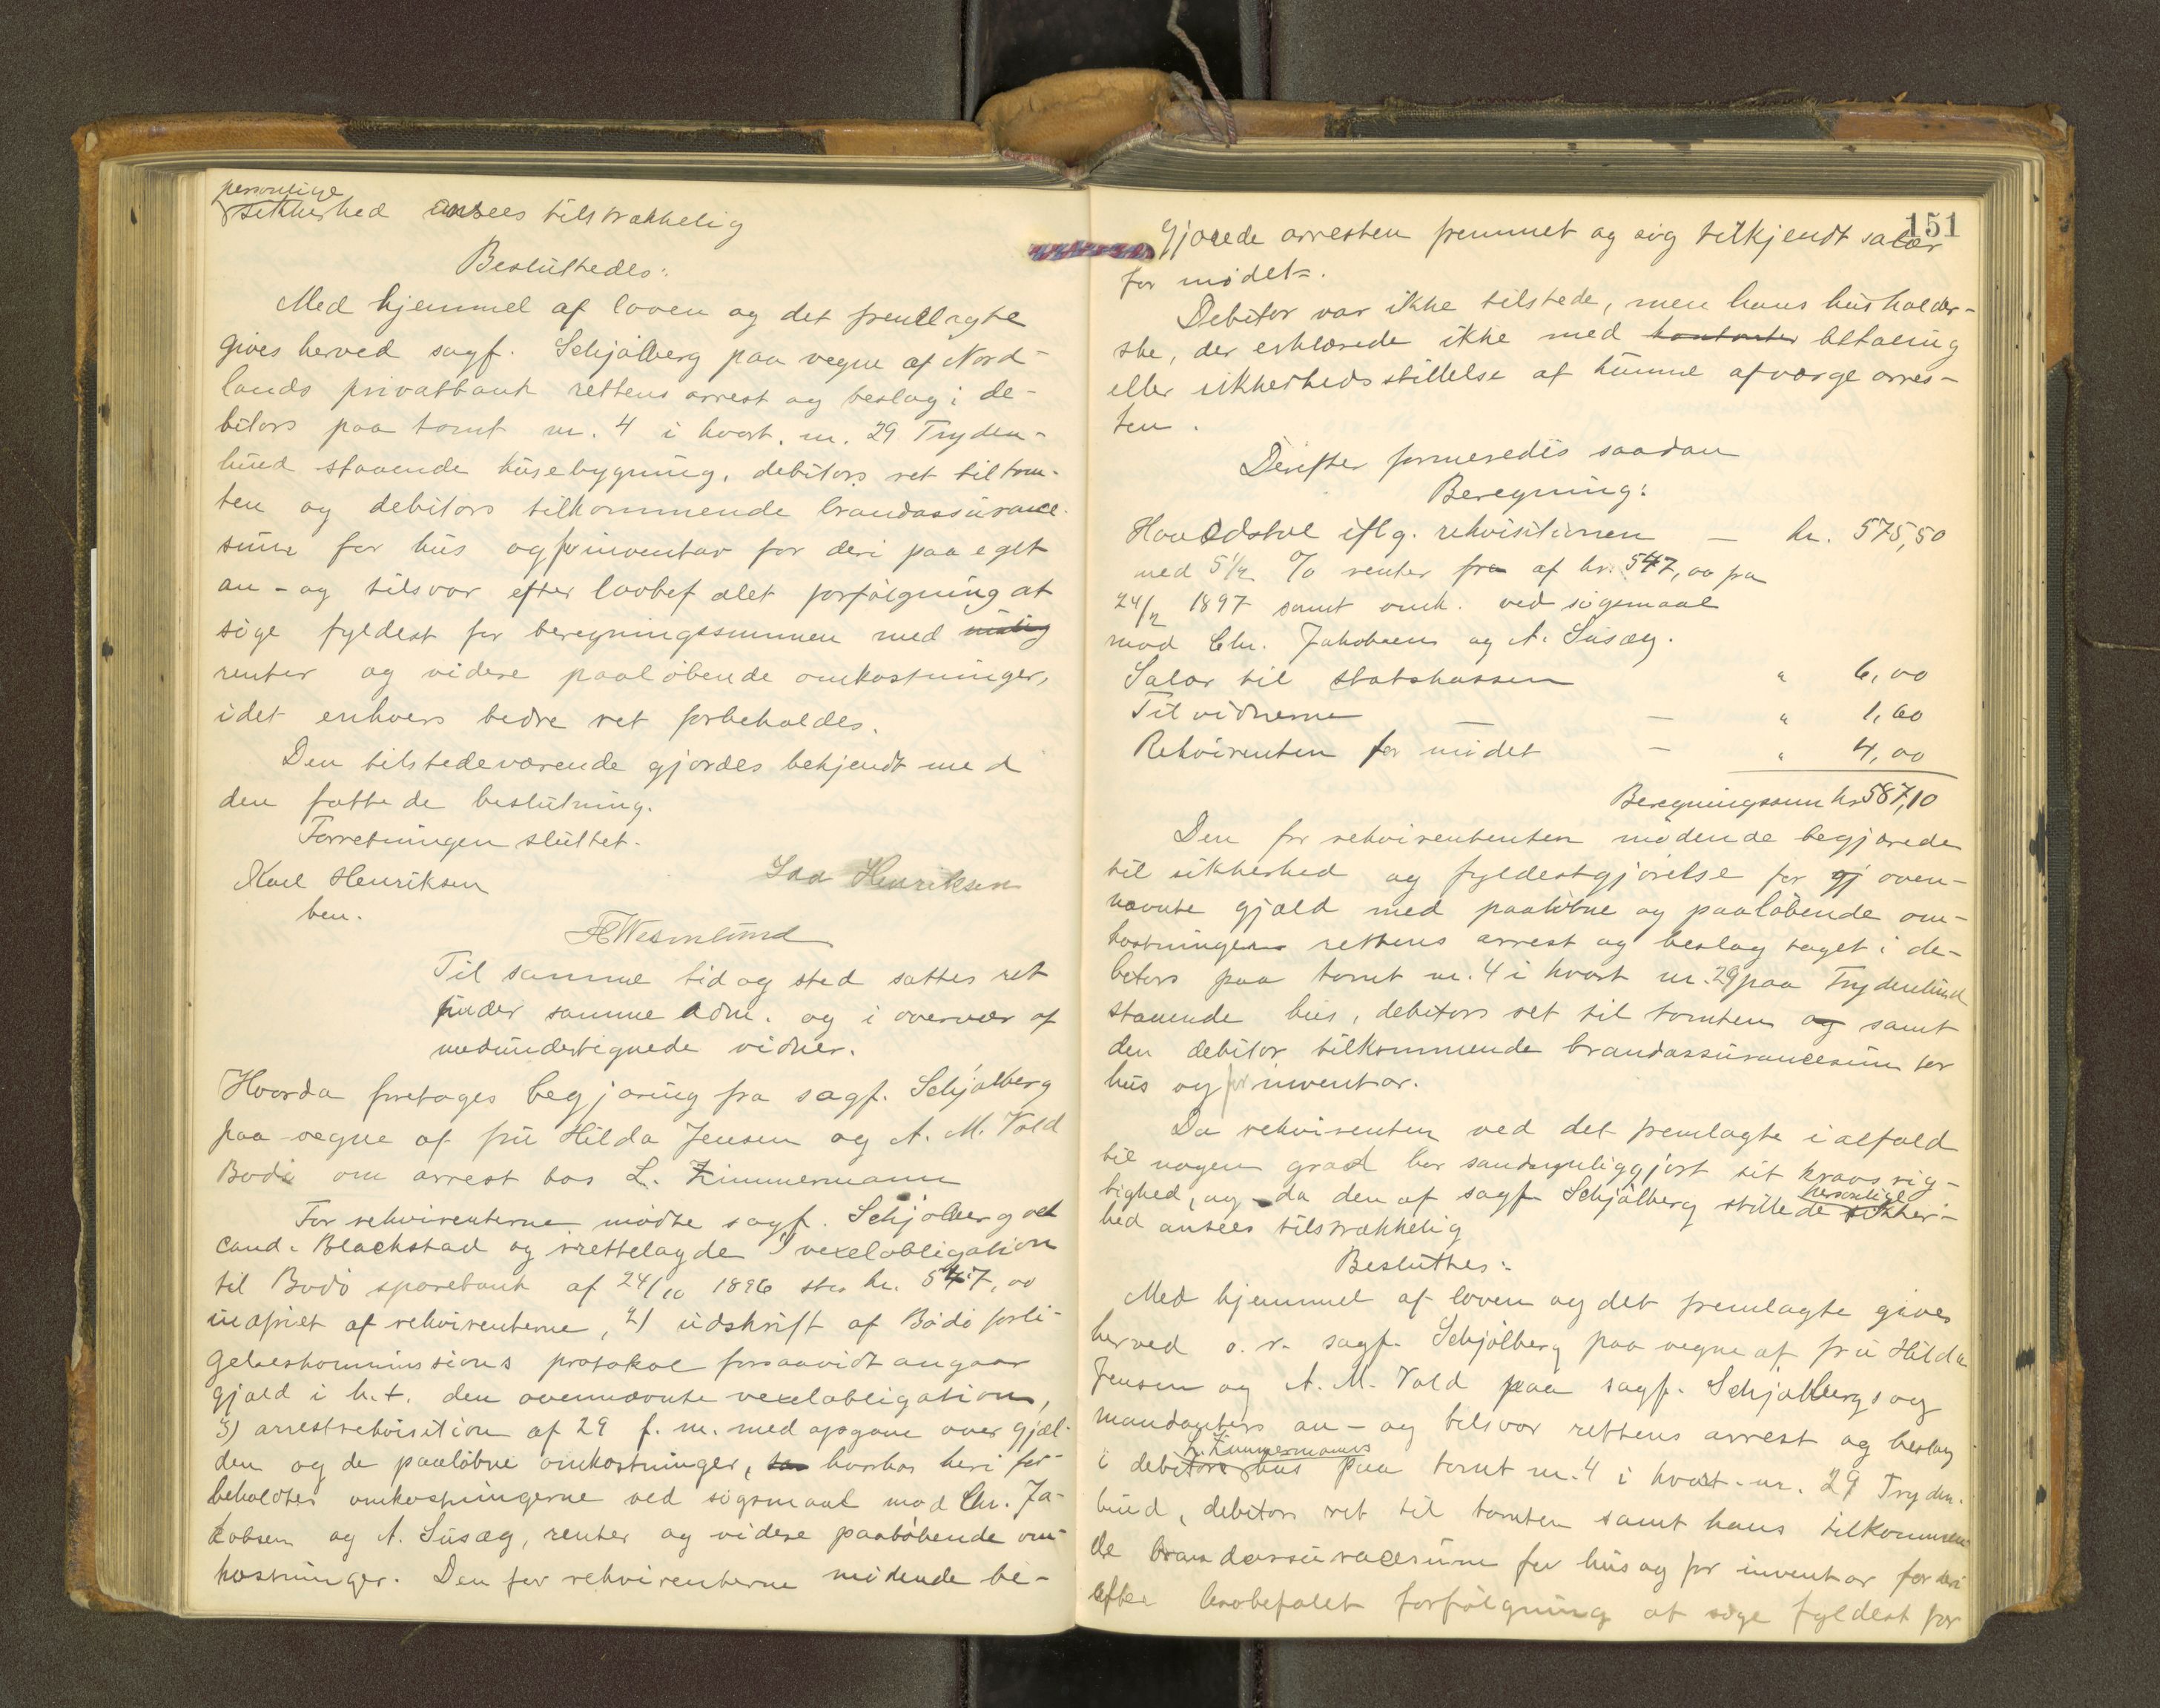 personlige
sikkerhed ansees tilstrækkelig
Besluttedes:
Med hjemmel af loven og det fremlagte
gives herved sagf. Schjølberg paa vegne af Nord-
lands privatbank rettens arrest og beslag i de-
bitors paa tomt nr. 4 i kvart. nr. 29 Tryden-
lund staaende husebygning, debitors ret til tom-
ten og debitors tilkommende brandassurance-
sum for hus og for inventar for deri paa eget
an- og tilsvar efter lovbefalet forfølgning at
søge fyldest for beregningssummen med
renter og videre paaløbende omkostninger,
idet enhvers bedre ret forbeholdes.
Den tilstedeværende gjordes bekjendt med
den fattede beslutning.
Forretningen sluttet.
Karl Henriksen
Ida Henriksen
ben.
Til samme tid og sted sattes ret
under samme adm. og i overvær af
medundertegnede vidner.
Hvorda foretages begjæring fra sagf. Schjølberg
paa vegne af fru Hilda Jensen og A. M. Vold
Bodø om arrest hos L. Zimmermann
For rekvirenterne mødte sagf. Schjølberg ved
cand. Blackstad og irettelagde 1) vexelobligation
til Bodø sparebank af 24/10 1896 stor kr. 547,00
indfriet af rekvirenterne, 2) udskrift af Bodø forli-
gelseskommissions protokol forsaavidt angaar
gjæld i h.t. den ovennævnte vexelobligation,
3) arrestrekvisition af 29 f. m. med opgave over gjæl-
den og de paaløbne omkostninger, hvorhos heri for-
beholdtes omkostningerne ved søgsmaal mod Chr. Ja-
kobsen og A. Susæg, renter og videre paaløbende om-
kostninger. Den for rekvirenterne mødende be-
151
gjærede arresten fremmet og sig tilkjendt salær
for mødet.
Debitor var ikke tilstede, men hans husholder-
ske, der erklærede ikke med kontanter betaling
eller sikkerhedsstillelse at kunne afværge arres-
ten.
Derefter formeredes saadan
Beregning:
Hovedstol iflg. rekvisitionen — kr. 575,50
med 5 1/2 % renter fra af kr. 547,00 fra
24/2 1897 samt omk. ved søgsmaal
mod Chr. Jakobsen og A. Susæg.
Salær til statskassen — " 6,00
Til vidnerne — — " 1,60
Rekvirenten for mødet — " 4,00
Beregningssum kr. 587,10
Den for rekvirententen mødende begjærede
til sikkerhed og fyldestgjørelse for gj oven-
nævnte gjæld med paaløbne og paaløbende om-
kostninger rettens arrest og beslag taget i de-
bitors paa tomt nr. 4 i kvart nr. 29 paa Trydenlund
staaende hus, debitors ret til tomten og samt
den debitor tilkommende brandassurancesum for
hus og for inventar.
Da rekvirenten ved det fremlagte ialfald
til nogen grad har sandsynliggjort sit kravs rig-
tighed, og da den af sagf. Schjølberg stillede personlige sikker-
hed ansees tilstrækkelig
Besluttes:
Med hjemmel af loven og det fremlagte gives
herved o. r. sagf. Schjølberg paa vegne af fru Hilda
Jensen og A. M. Vold paa sagf. Schjølbergs og
mandanters an- og tilsvar rettens arrest og beslag
L. Zimmermanns
i debitors hus paa tomt nr. 4 i kvart. nr. 29 Tryden-
lund, debitors ret til tomten samt hans tilkommen-
de brandassuracesum for hus og for inventar for deri
efter lovbefalet forfølgning at søge fyldest for